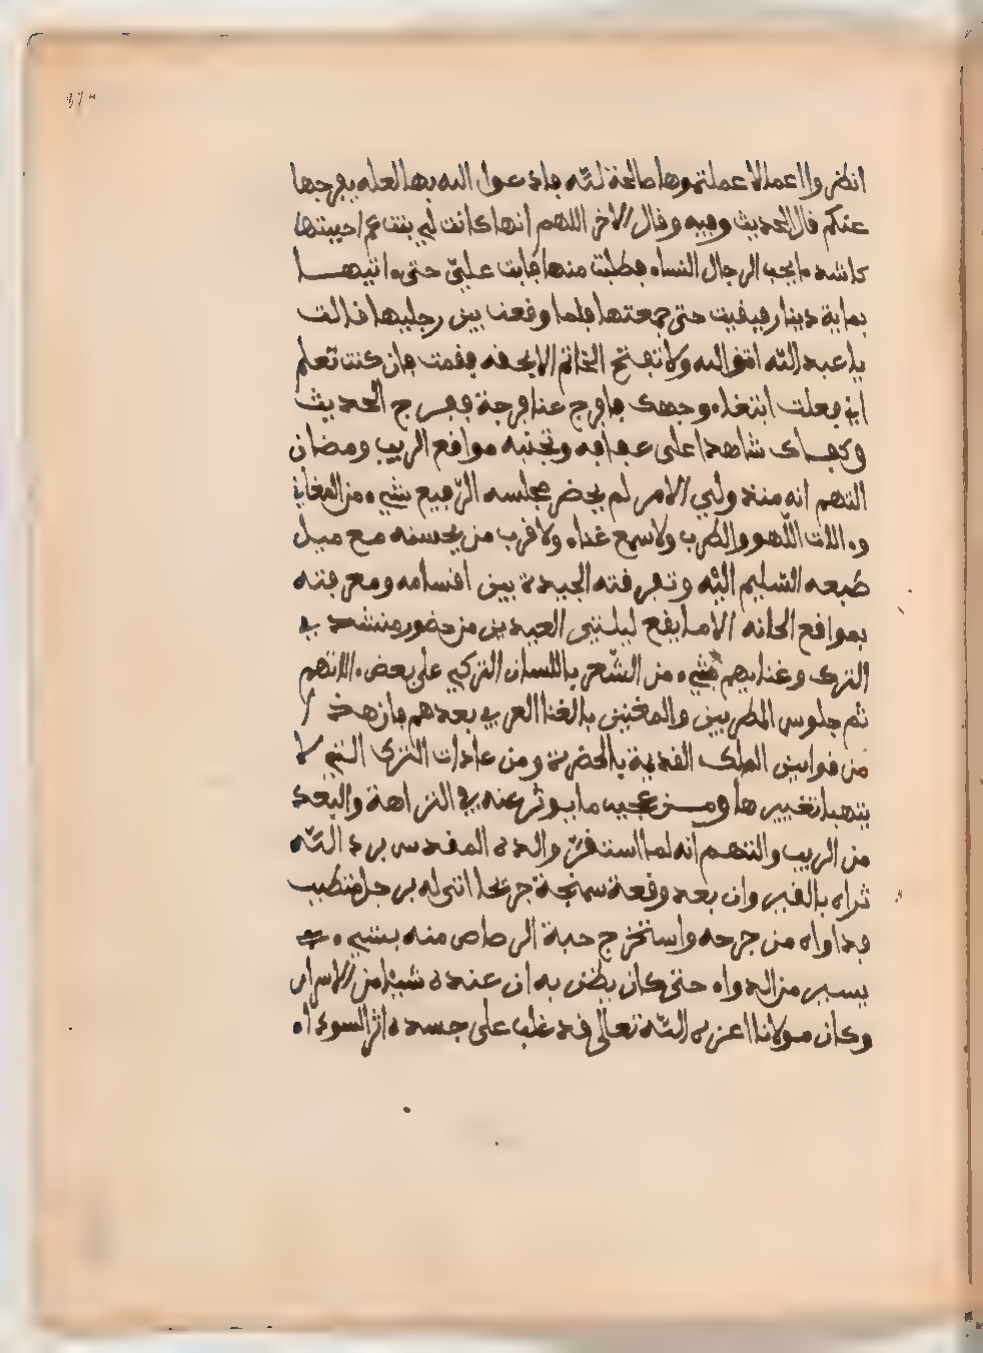 37
انظروا اعمالا عملتموها صالحة لله فادعوا الله بها لعله يفرجها
عنكم قال الحديث وفيه وقال الاخر اللهم انها كانت لي بنت عم احببتها
كاشد ما يحب الرجال النساء فطلبت منها فابت علي حتى ءاتيها
بماية دينار فبغيت حتى جمعتها فلما وقعت بين رجليها قالت
يا عبد الله اتق الله ولا تفتح الخاتم الا بحقه فقمت فان كنت تعلم
اني فعلت ابتغاء وجهك فافرج عنا فرجة ففرج الحديث
وكفاك شاهدا على عفافه وتجنبه مواقع الريب ومضان
التهم انه منذ ولي الامر لم يحضر مجلسه الرفيع بشيء من المغاني
وءالات اللهو والطرب ولا سمع غناء ولا قرب من يحسنه مع ميل
طبعه السليم اليه وتفرقته الجيدة بين اقسامه ومعرفته
بمواقع الحانه الا ما يقع ليلتي العيدين من حضور منشدي
الترك وغنايهم بشيء من الشعر باللسان التركي على بعض ءالاتهم
ثم جلوس المطربين والمغنين بالغنا العربي بعدهم فان هذا
من قوانين الملك القديمة بالحضرة ومن عادات الترك التي لا
يتهيا تغييرها ومن عجيب ما يوثر عنه في النزاهة والبعد
من الريب والتهم انه لما استقر والده المقدس برد الله
ثراه بالقيروان بعد وقعة سمنجة جريحا اتى له برجل متطبب
فداواه من جرحه واستخرج حبة الرصاص منه بشيء
يسير من الدواء حتى كان يظن به ان عنده شيئا من الاسرار
وكان مولانا اعزه الله تعالى قد غلب على جسده اثر السوداء